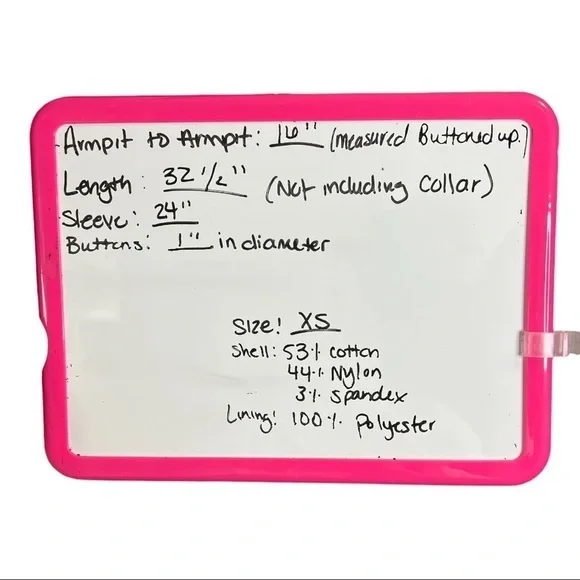 Armpit to Armpit: 16" (measured Buttoned up.)
Length: 32 1/2" (Not including Collar)
Sleeve: 24"
Buttons: 1" in diameter
Size: XS
Shell: 53% cotton
44% Nylon
3% Spandex
Lining: 100% Polyester